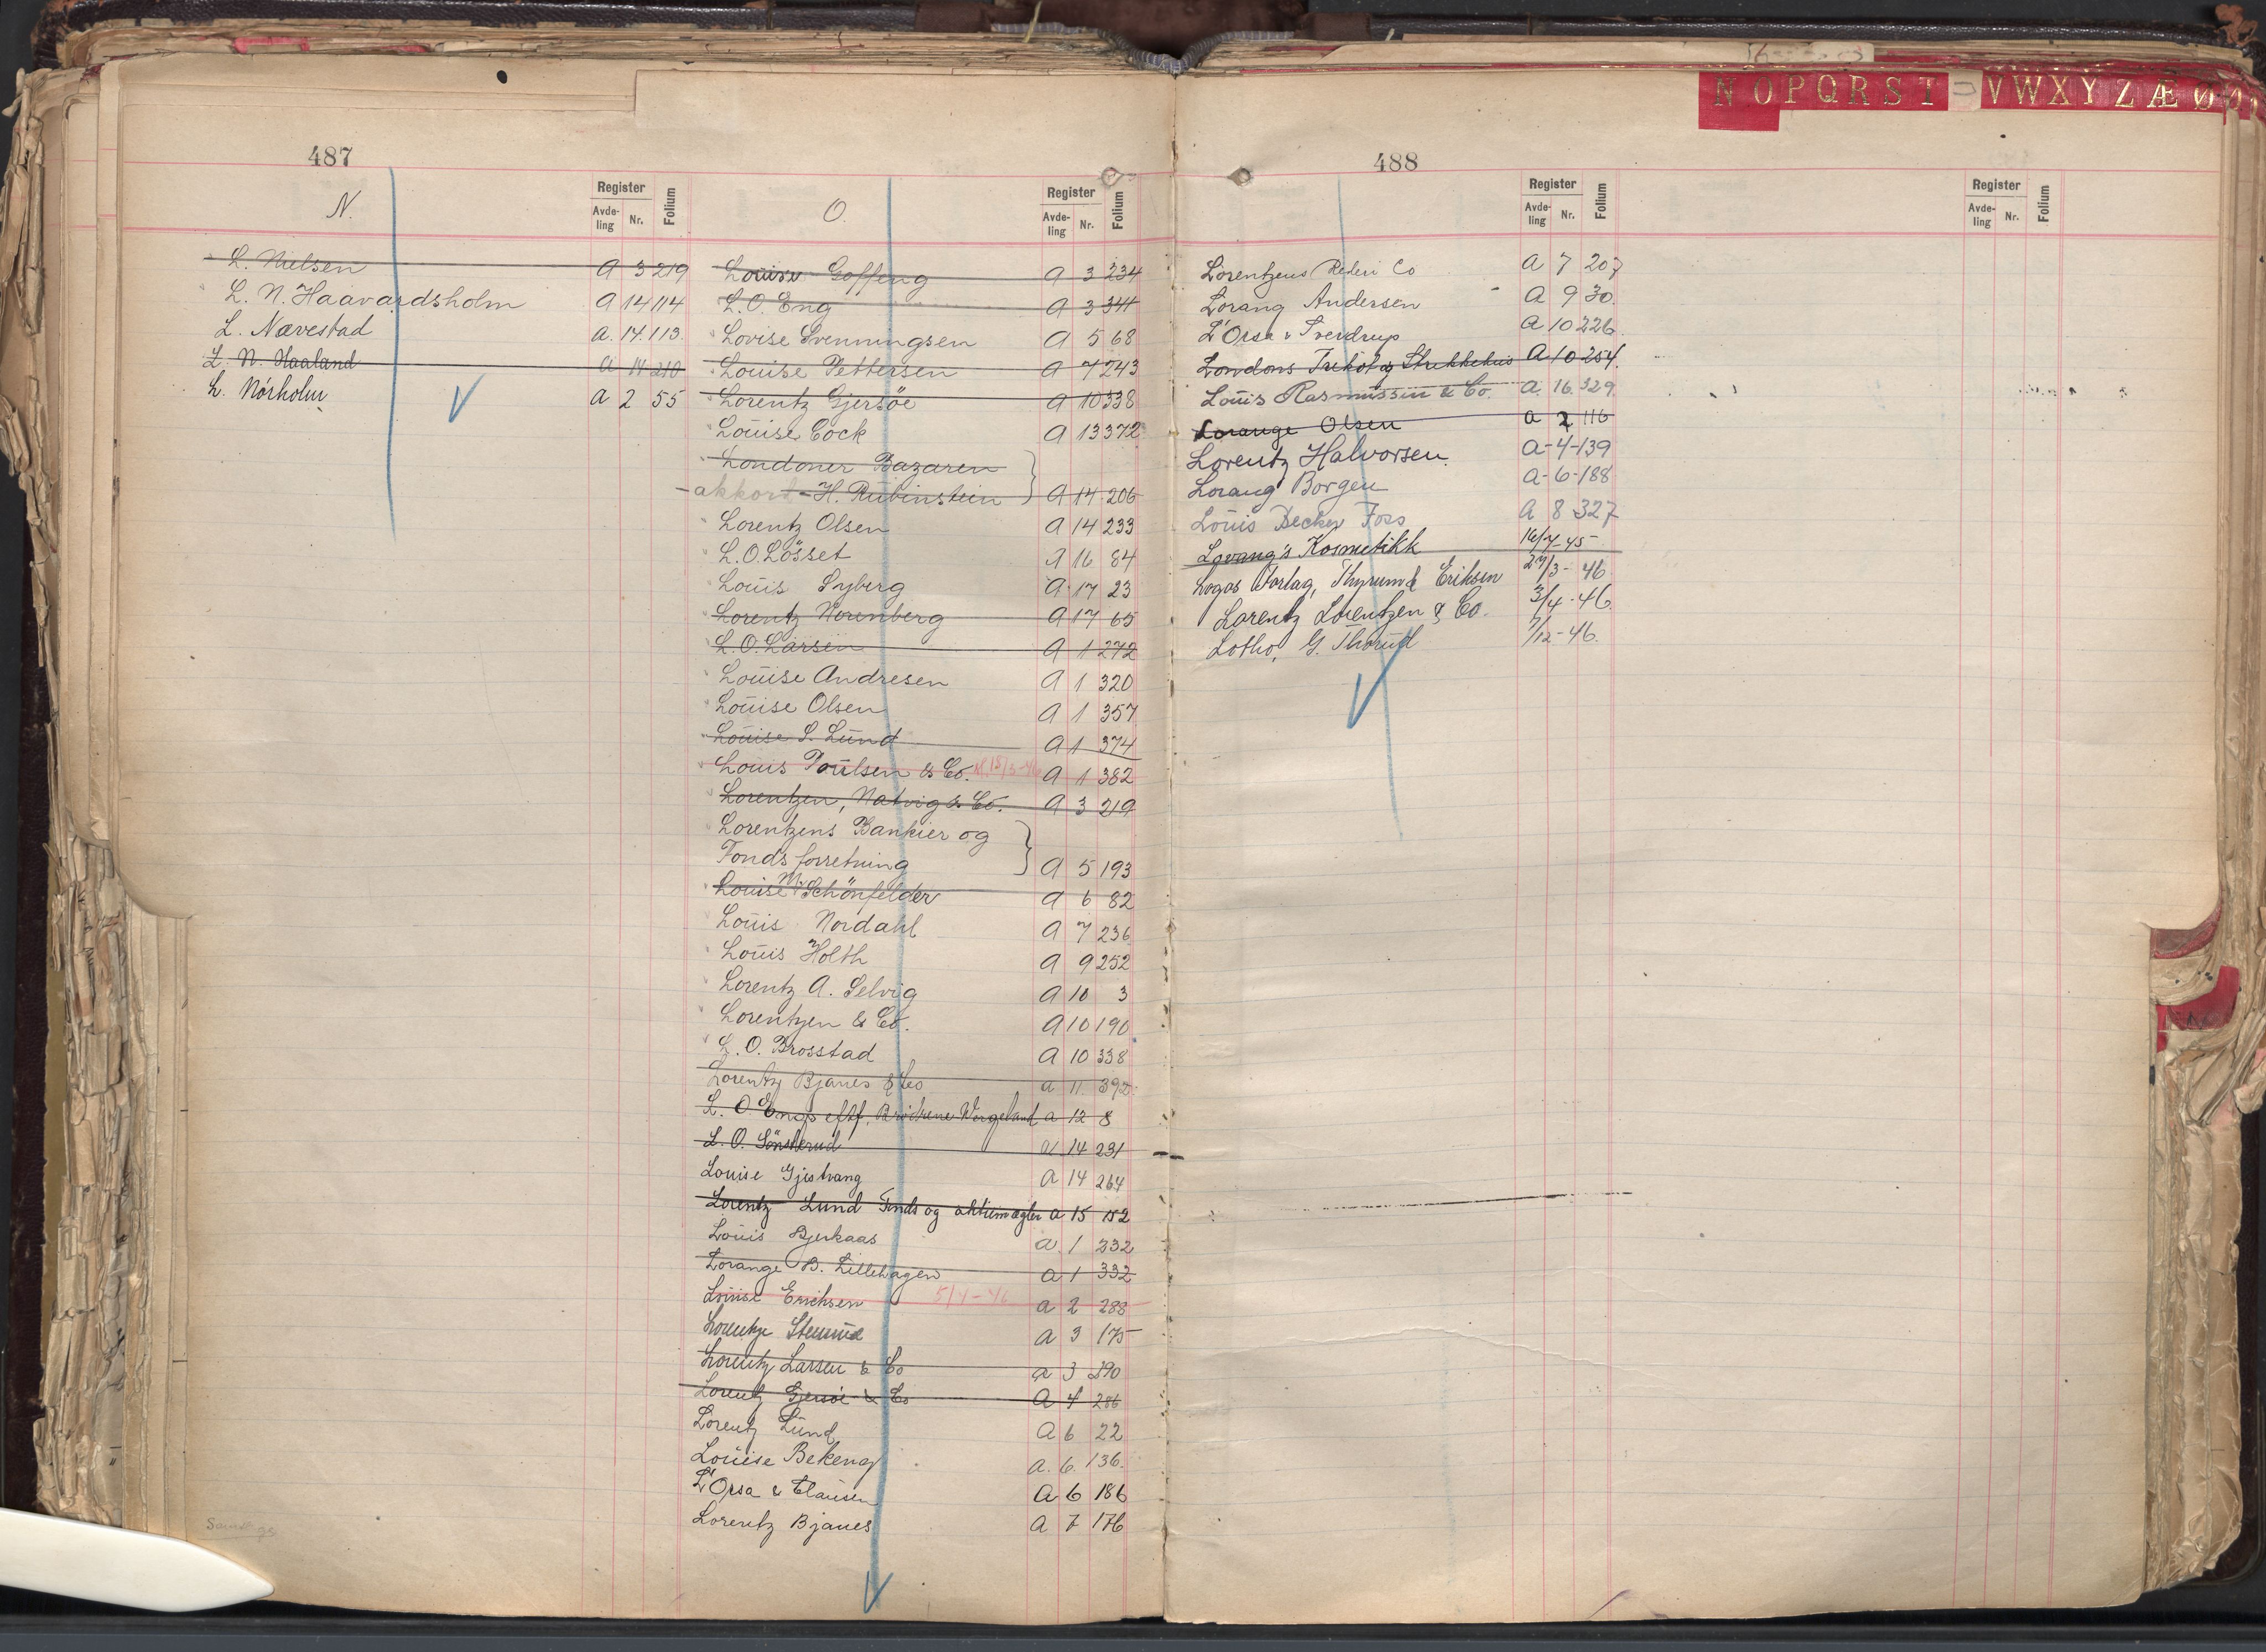 487
N.
Register
Avde-
ling
Nr.
Folium
L. Nielsen A 3 219
L. N. Haavardsholm A 14 114
L. Nævestad A. 14. 113.
L. N. Haaland A 14 210
L. Nörholm A 2 55
O.
Register
Avde-
ling
Nr.
Folium
Louise Goffeng A 3 234
L. O. Eng A 3 344
Lovise Svenningsen A 5 68
Louise Pettersen A 7 243
Lorentz Gjersöe A 10 338
Louise Cock A 13 372
Londoner Bazaren
akkord - H. Rubinstein A 14 206
Lorentz Olsen A 14 233
L. O. Lösset A 16 84
Louis Syberg A 17 23
Lorentz Norenberg A 17 65
L. O. Larsen A 1 272
Louise Andresen A 1 320
Louise Olsen A 1 357
Louise S. Lund A 1 374
Louis Poulsen & Co. A 1 382
Lorentzen, Natvig & Co. A 3 219
Lorentzens Bankier og
Fondsforretning A 5 193
Louise M. Schönfelder A 6 82
Louis Nordahl A 7 236
Louis Holth A 9 252
Lorentz A. Selvig A 10 3
Lorentzen & Co. A 10 190
L. O. Brosstad A 10 338
Lorentz Bjanes & Co A 11. 392
L. O Engs eftf. Brödrene Wergeland A 12 8
L. O. Sönsterud A 14 231
Louise Gjestvang A 14 264
Lorentz Lund Fonds og aktiemægler A 15 152
Louis Bjerkaas A 1 232
Lorange B. Lillehagen A 1 332
Louise Erichsen 5/4-46 A 2 288
A 3 175
Lorentz Larsen & Co A 3 290
Lorentz Gjersöe & Co A 4 286
Lorentz Lund A 6 22
Louise Bekeng A. 6. 136.
L'Orsa & Clausen A 6 186
Lorentz Bjanes A 7 176
488
Register
Avde-
ling
Nr.
Folium
Lorentzens Rederi Co A 7 207
Lorang Andersen A 9 30.
L'Orsa & Sverdrup A 10 226
Londons Trikot og Strikkehus A 10 254.
Louis Rasmussen & Co. A. 16. 329.
Lorange Olsen A 2 116
Lorentz Halvorsen A-4-139
Lorang Borgen A-6-188
Louis Becker Foss A 8 327
Lorang's Kosmetikk 16/7-45
Logos Forlag, Thyrum & Eriksen 27/3-46
Lorentz Lorentzen & Co. 3/4-46.
Lotho, G. Thorud 7/12-46.
Register
Avde-
ling
Nr.
Folium
N O P Q R S T V W X Y Z Æ Ø